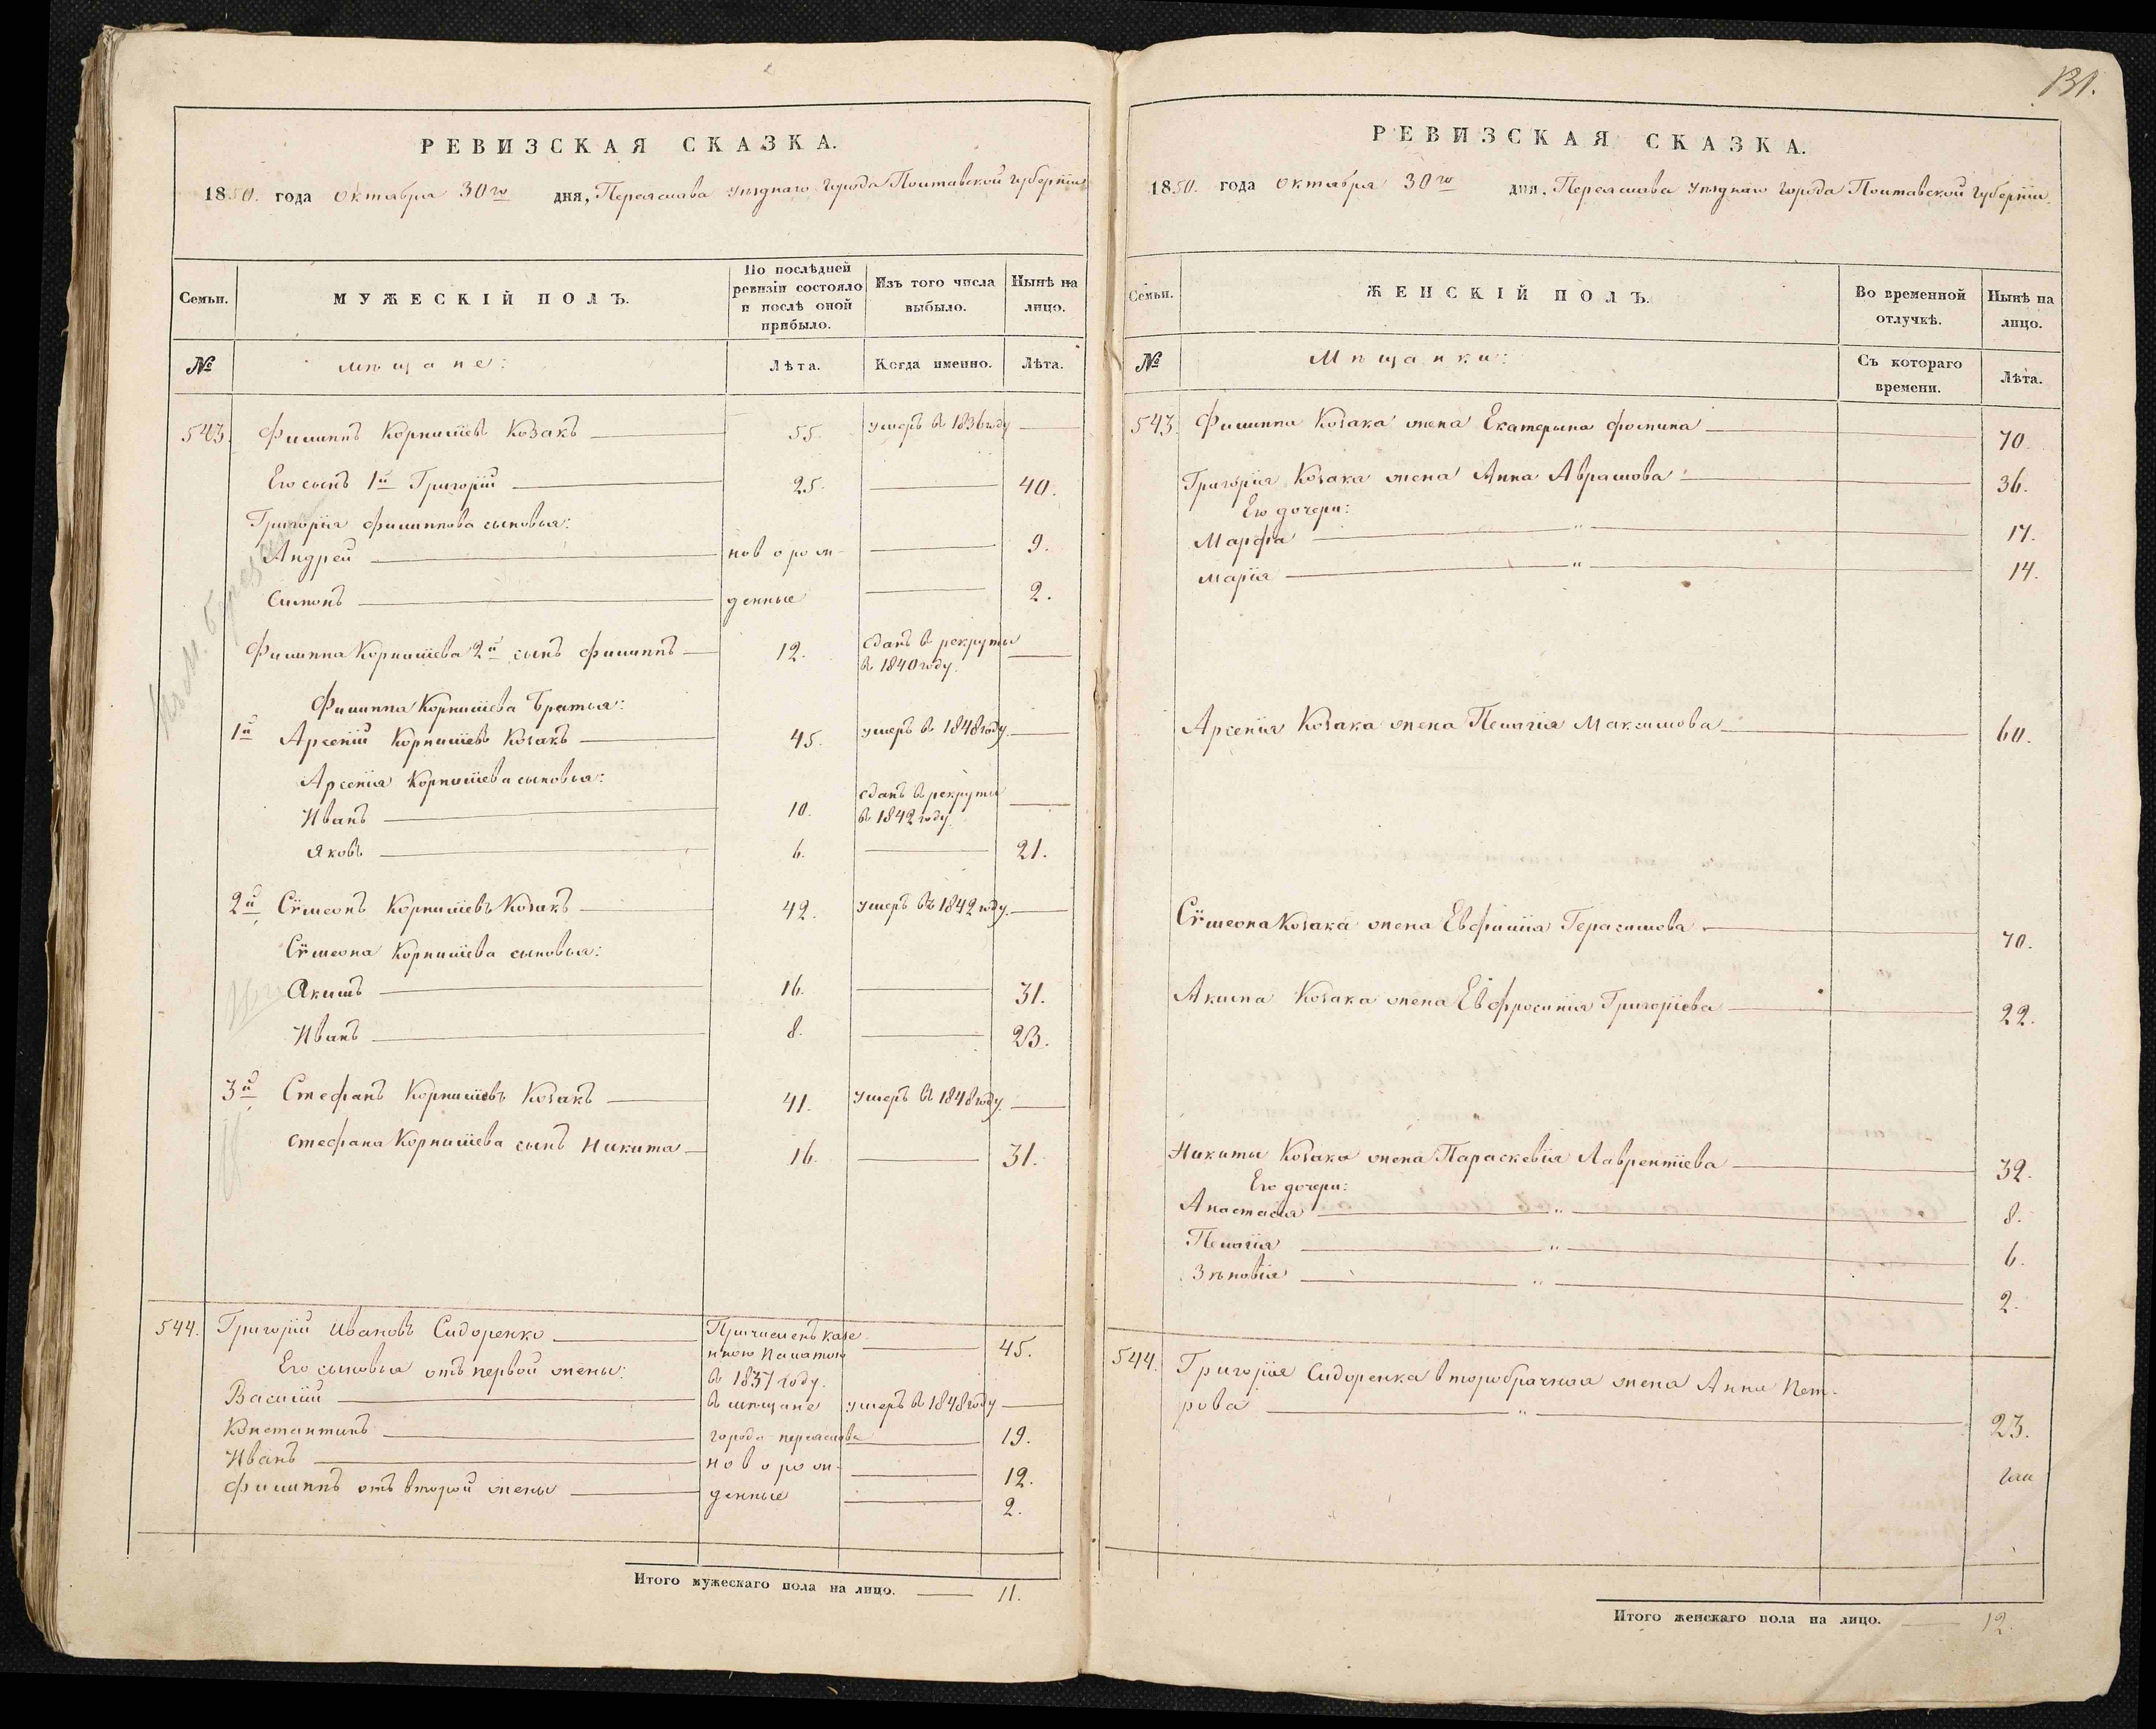 РЕВИЗСКАЯ СКАЗКА.
1850. года октября 30го дня, Переяслава уѣзднаго города Полтавской губерніи
Семьи.
МУЖЕСКІЙ ПОЛЪ.
По послѣдней ревизіи состояло и послѣ оной прибыло.
Изъ того числа выбыло.
Нынѣ на лицо.
№
мѣщане:
Лѣта.
Когда именно.
Лѣта.
543. Филиппъ Корнилїевъ Козакъ 55. умеръ в 1836 году
Его сынъ 1й Григорїй 25. 40.
Григорїя Филиппова сыновья:
Андрей новорож- 9.
Симонъ денные 2.
Филиппа Корнилїева 2й сынъ Филиппъ 12. сданъ в рекруты в 1840 году.
Филиппа Корнилїева братья:
1й Арсенїй Корнилїевъ Козакъ 45. умеръ в 1848 году
Арсенїя Корнилїева сыновья:
Иванъ 10. сданъ в рекруты в 1842 году.
Яковъ 6. 21.
2й Сѵмеонъ Корнилїевъ Козакъ 42. умеръ въ 1842 году.
Сѵмеона Корнилїева сыновья:
Акимъ 16. 31.
Иванъ 8. 23.
3й Стефанъ Корнилїевъ Козакъ 41. умеръ в 1848 году
Стефана Корнилїева сынъ Никита 16. 31.
544. Григорїй Ивановъ Сидоренко Причисленъ казе- 45.
нною Палатою
Его сыновья отъ первой жены: в 1837 году.
Василїй в мѣщане умеръ в 1848 году
Константинъ города переяслава 19.
Иванъ новорож- 12.
Филиппъ отъ второй жены денные 2.
Итого мужескаго пола на лицо. 11.
131.
РЕВИЗСКАЯ СКАЗКА.
1850. года октября 30го дня, Переяслава уѣзднаго города Полтавской губерніи.
Семьи.
ЖЕНСКІЙ ПОЛЪ.
Во временной отлучкѣ.
Нынѣ на лицо.
№
Мѣщанки:
Съ котораго времени.
Лѣта.
543. Филиппа Козака жена Екатерина Фомина 70.
Григорїя Козака жена Анна Аврамова 36.
Его дочери:
Марфа " 17.
Марїя " 14.
Арсенїя Козака жена Пелагїя Максимова 60.
Сѵмеона Козака жена Евфимїя Герасимова 70.
Акима Козака жена Евфросинїя Григорїева 22.
Никиты Козака жена Параскевїя Лаврентїева 32.
Его дочери:
Анастасїя " 8.
Пелагїя " 6.
Зѣновїя " 2.
544. Григорїя Сидоренка второбрачная жена Анна Пет-
рова " 23.
Итого женскаго пола на лицо. 12.